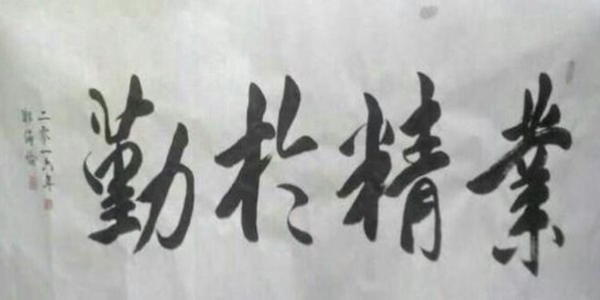 業精於勤
二零一六年